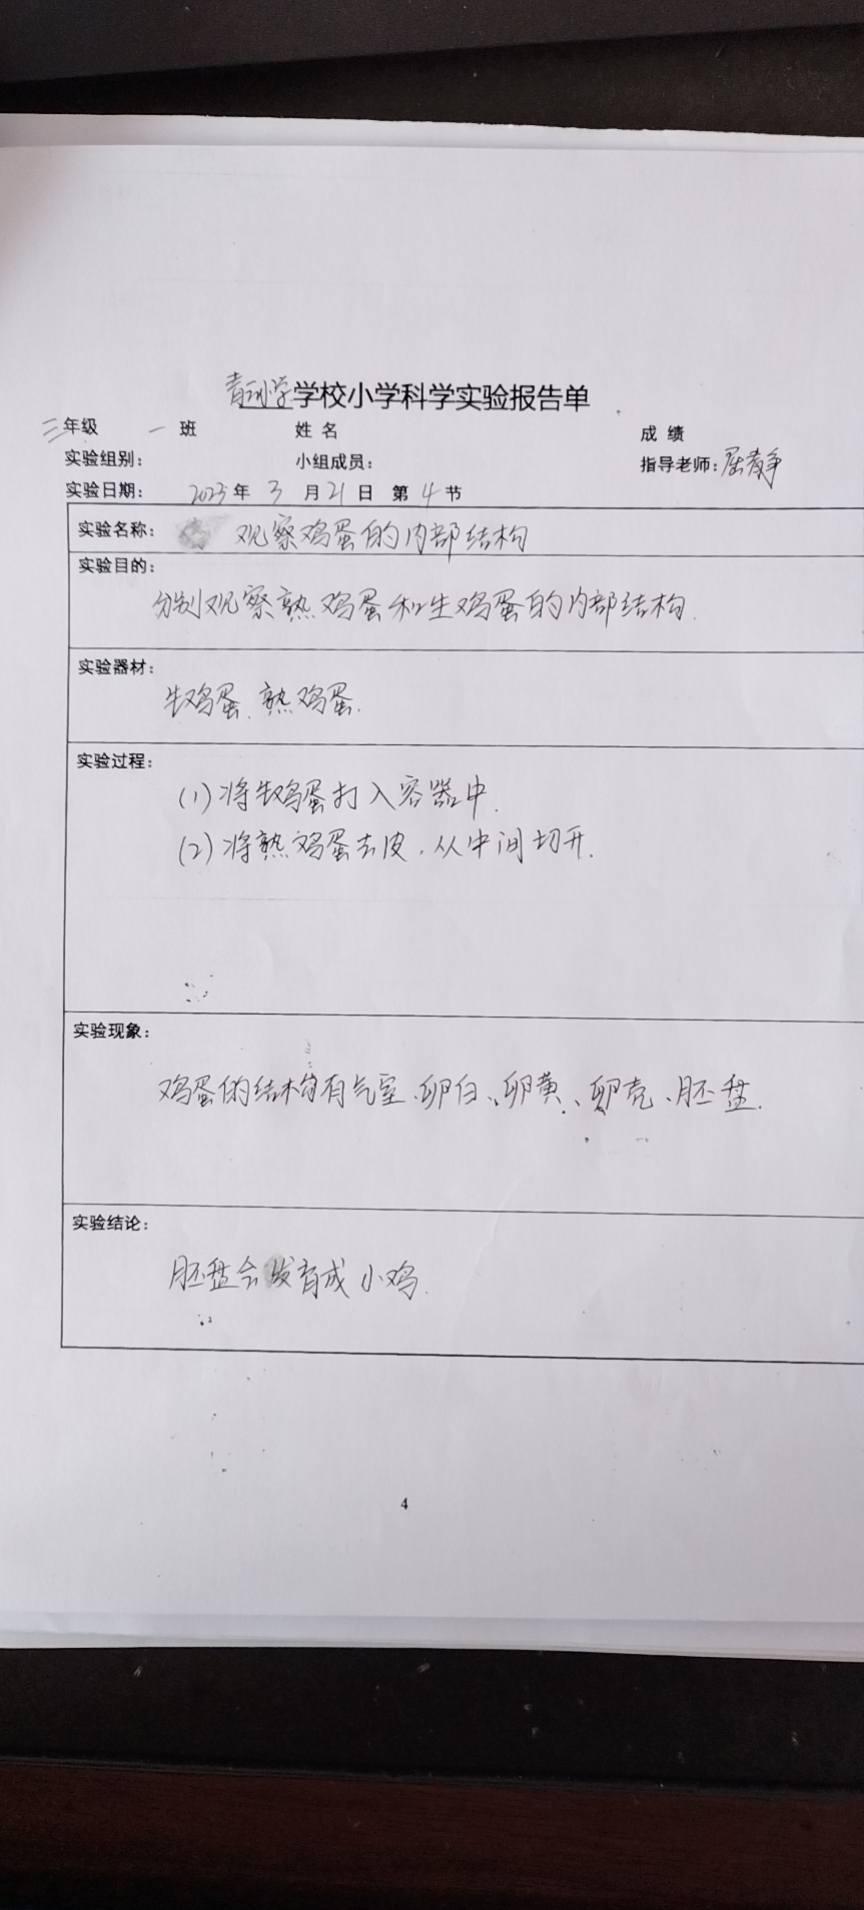 学校小学科学实验报告单
三年级 一 班 姓 名 成 绩
实验组别： 小组成员： 指导老师：屈静
实验日期： 2023年 3 月 21 日 第 4 节
实验名称： 观察鸡蛋的内部结构
实验目的：
分别观察熟鸡蛋和生鸡蛋的内部结构.
实验器材：
生鸡蛋、熟鸡蛋.
实验过程：
(1)将生鸡蛋打入容器中.
(2)将熟鸡蛋去皮，从中间切开.
实验现象：
鸡蛋的结构有气室、卵白、卵黄、卵壳、胚盘.
实验结论：
胚盘会发育成小鸡.
4